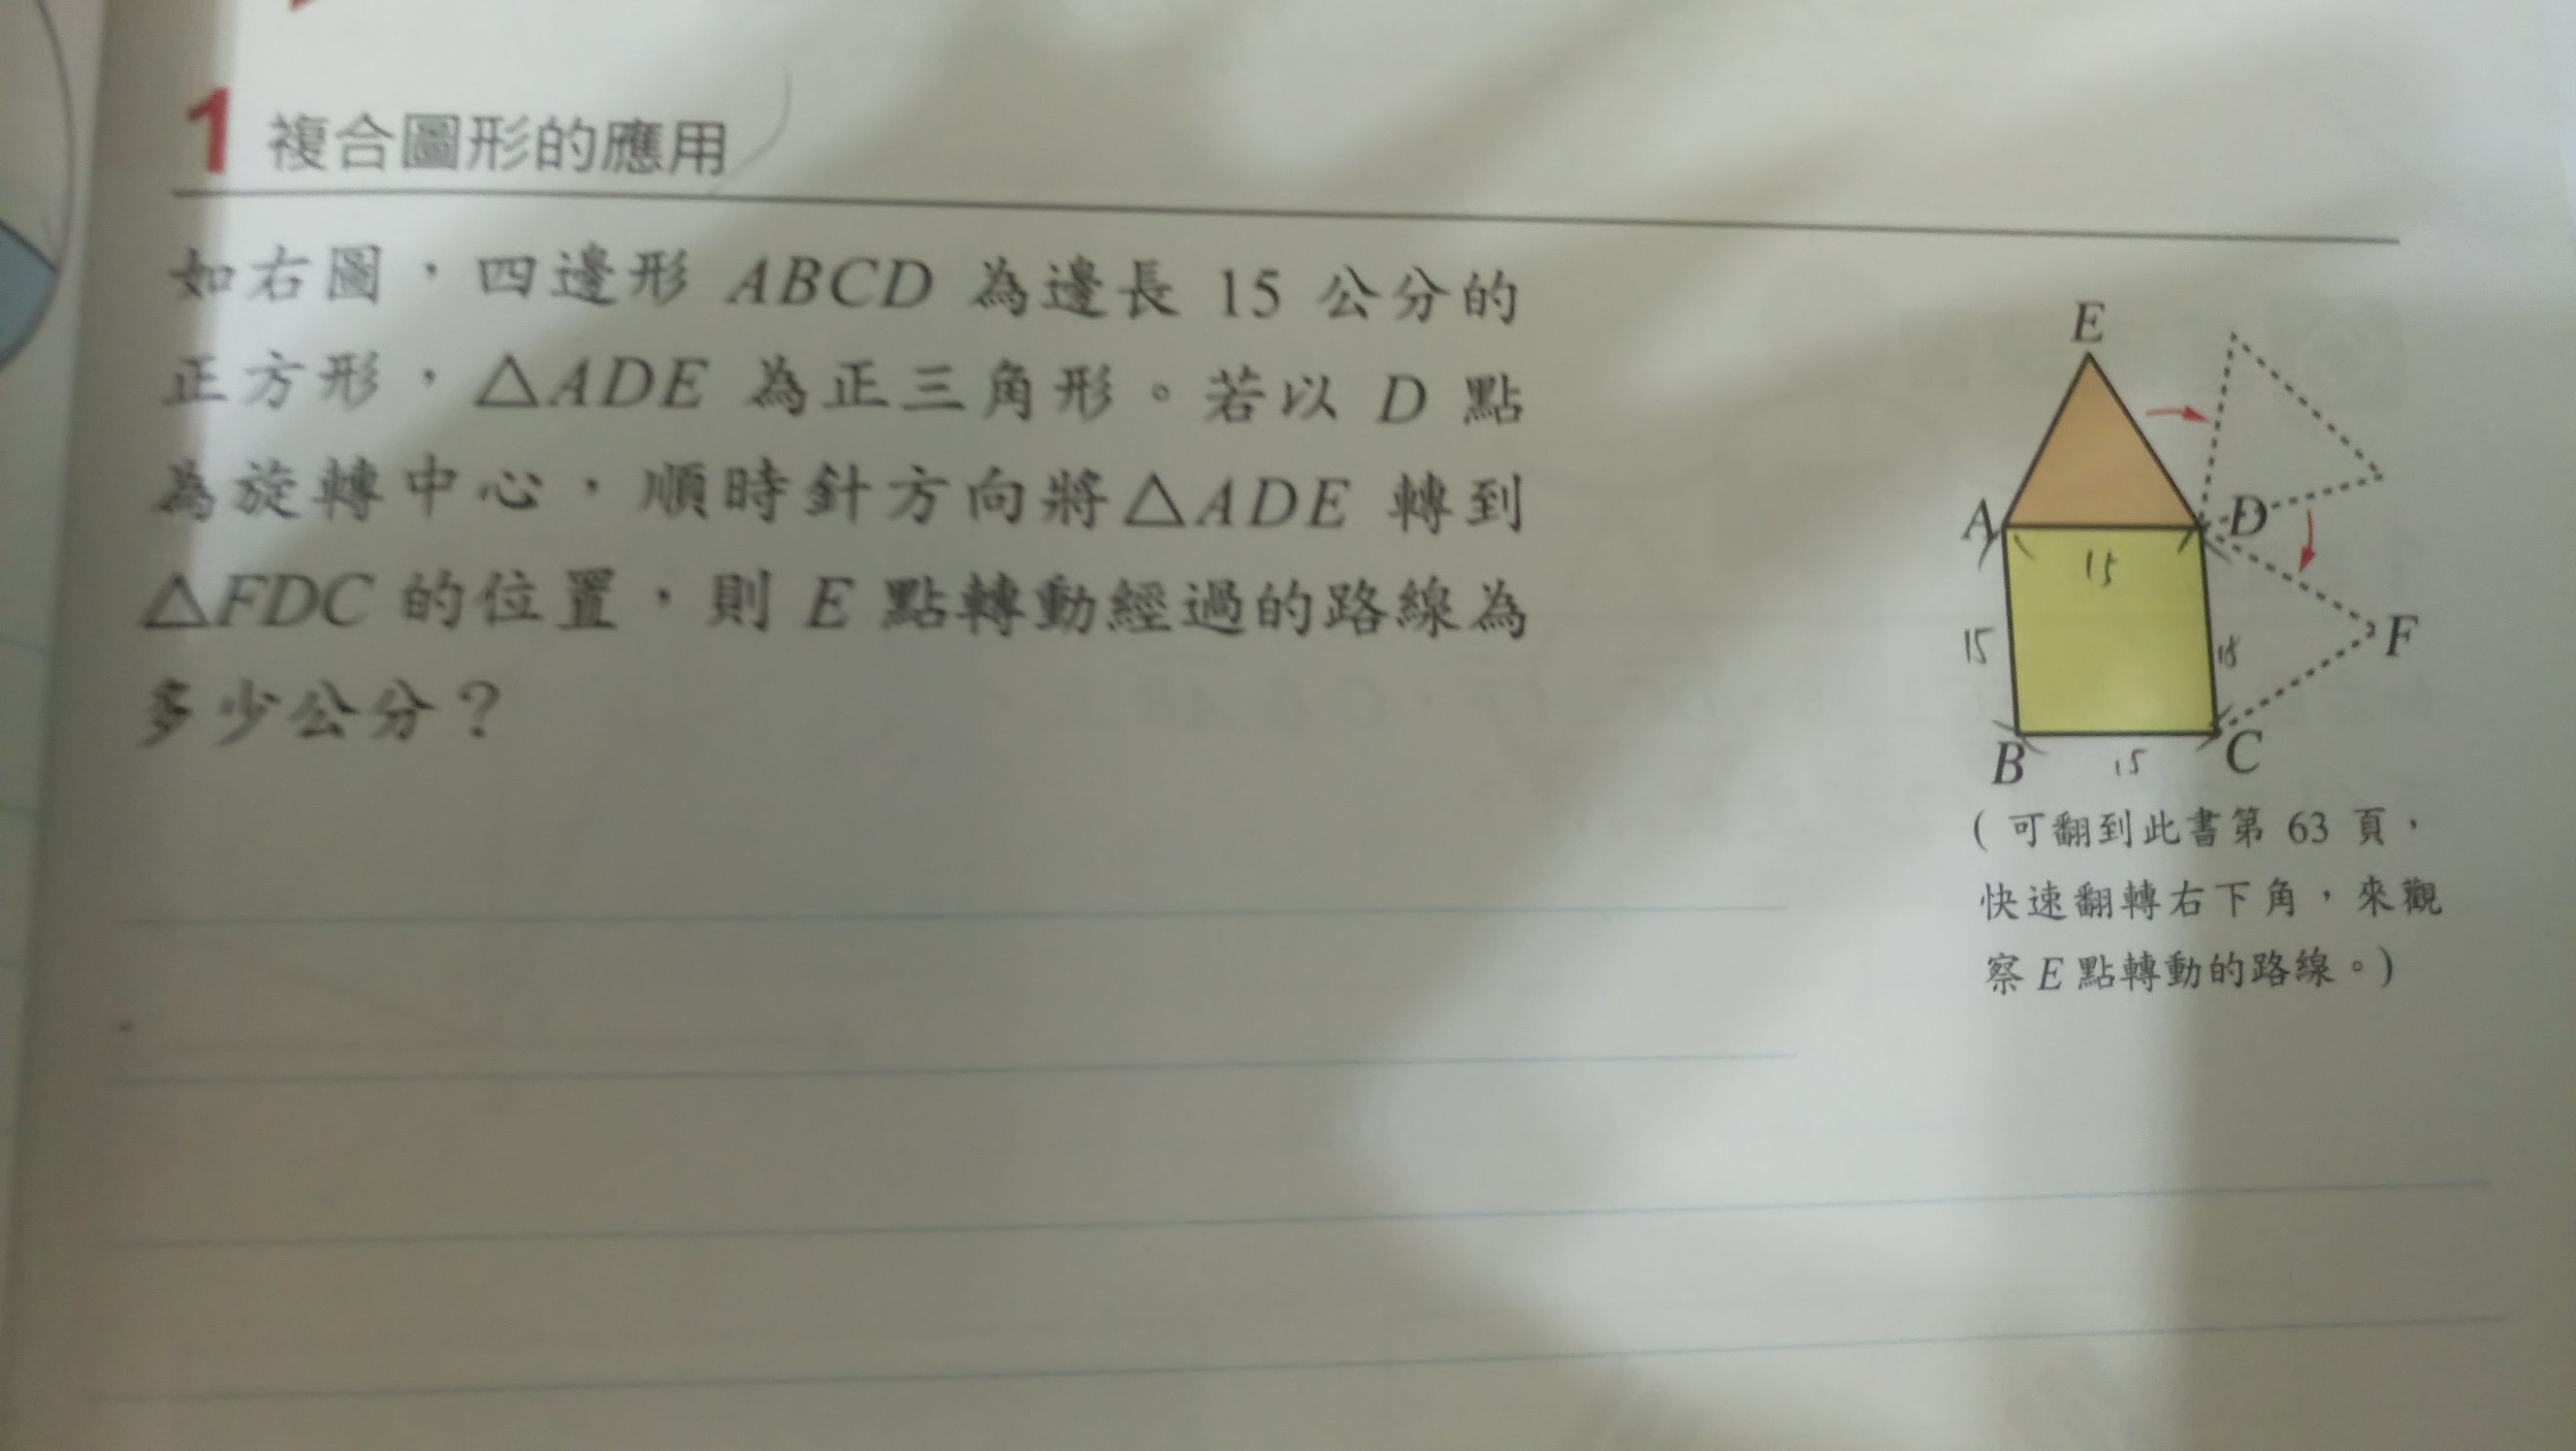 1 複合圖形的應用
如右圖，四邊形 ABCD 為邊長 15 公分的
正方形，△ADE 為正三角形。若以 D 點
為旋轉中心，順時針方向將△ADE 轉到
△FDC 的位置，則 E 點轉動經過的路線為
多少公分？
E
A
D
15
15
15
F
B
15
C
(可翻到此書第 63 頁，
快速翻轉右下角，來觀
察 E 點轉動的路線。)